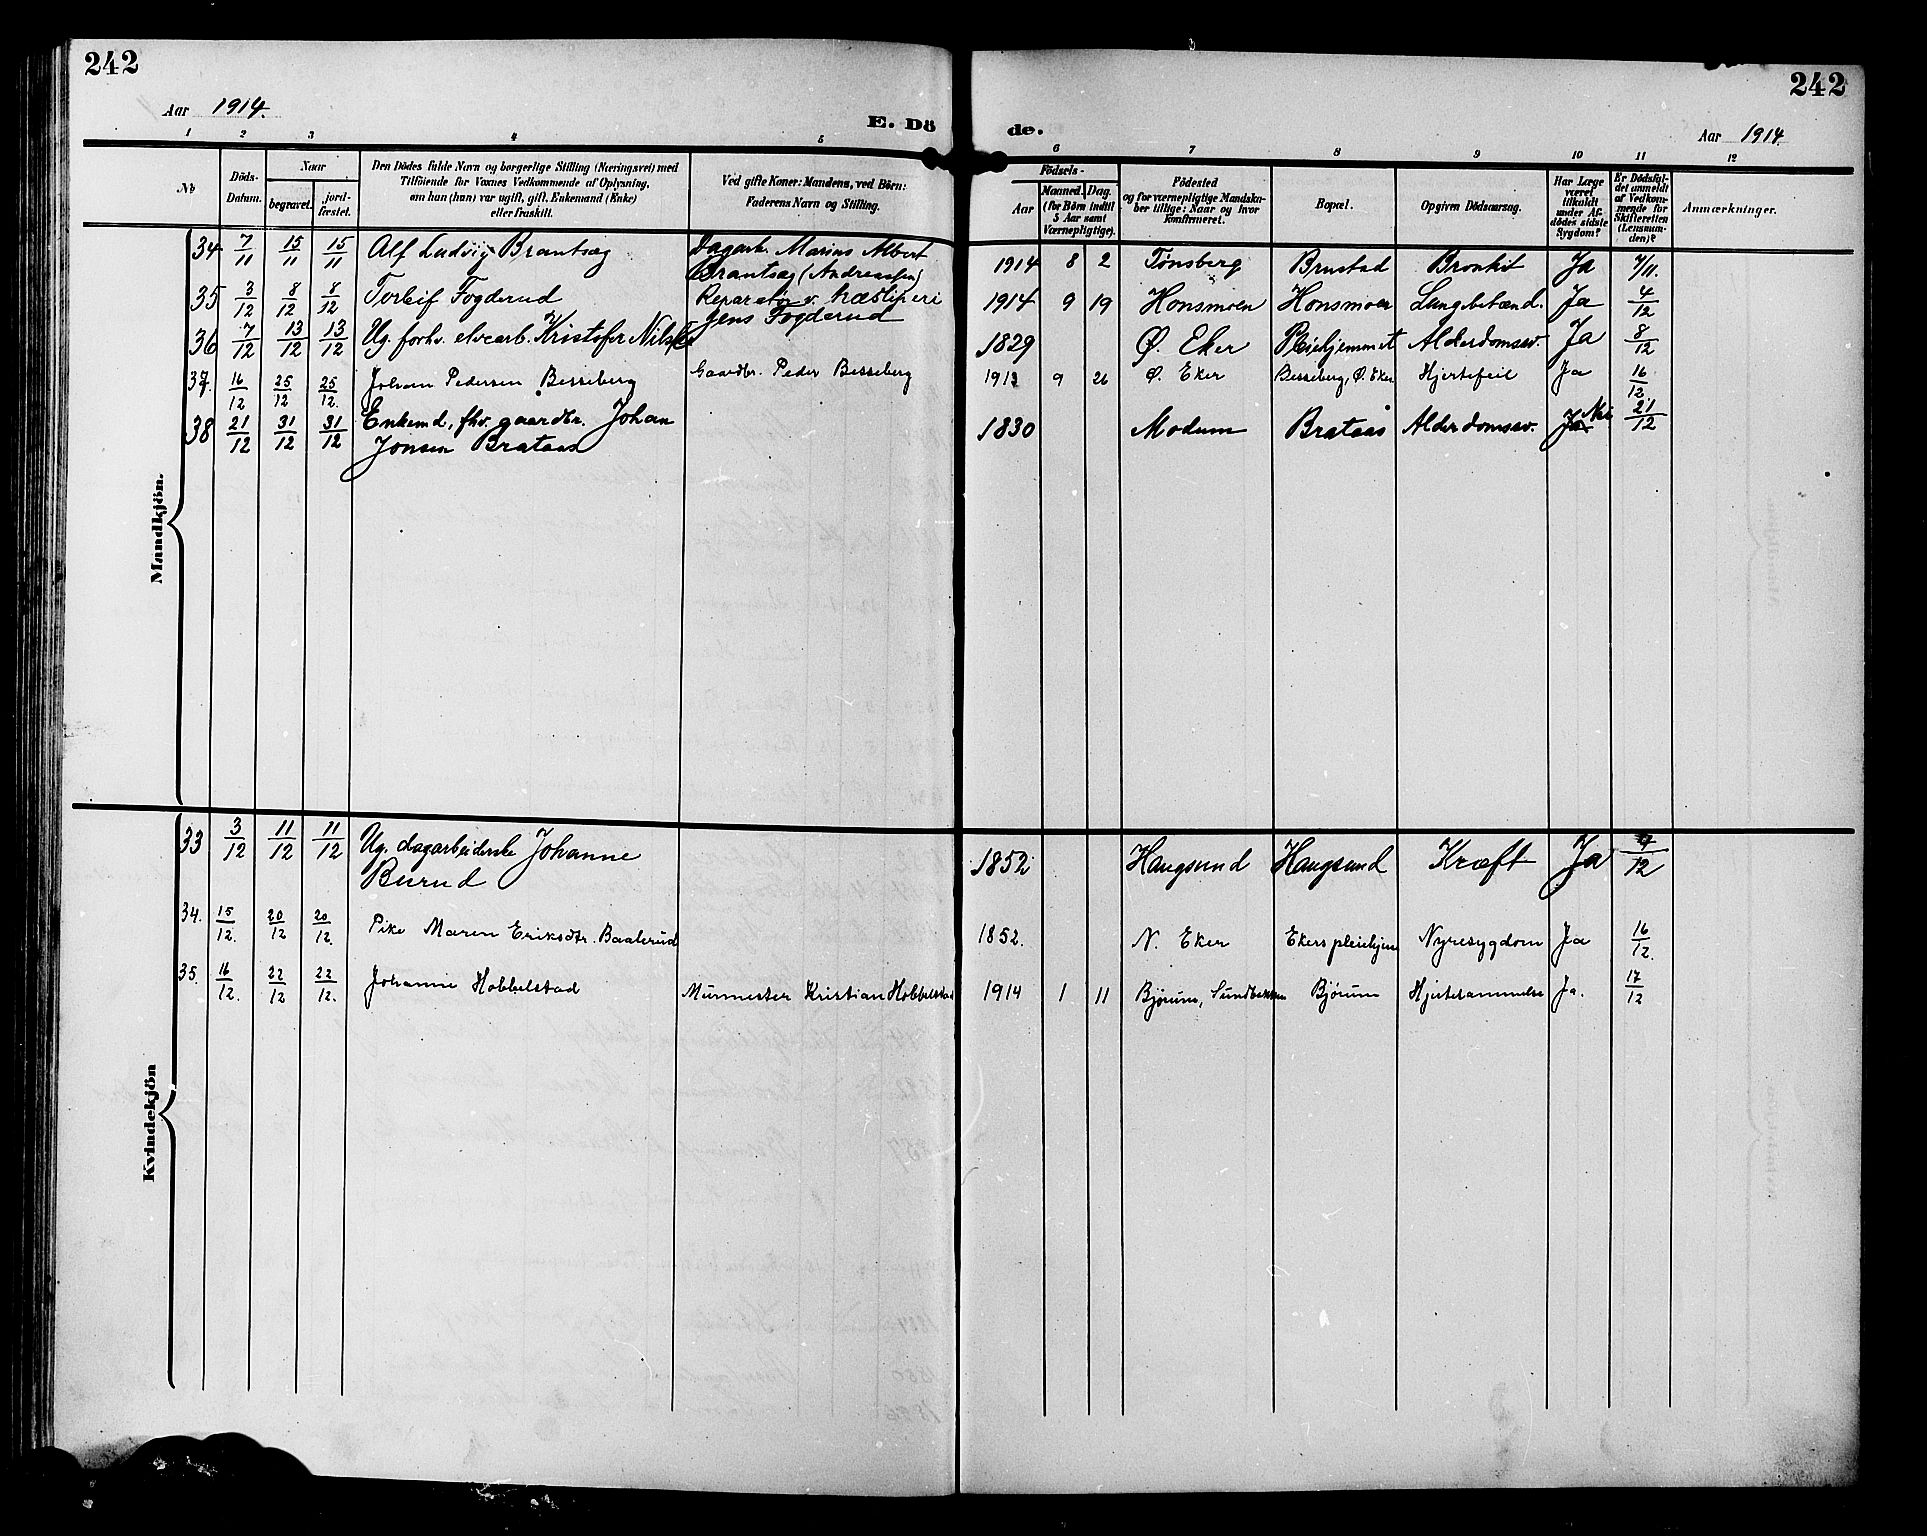 242
242
Aar 1914.
E. Dö
de.
Aar 1914.
1 2 3 4 5 6 7 8 9 10 11 12
No
Döds-
Datum.
Naar
begravet.
jord-
fæstet.
Den Dödes fulde Navn og borgerlige Stilling (Næringsvei) med
Tilföiende for Voxnes Vedkommende af Oplysning,
om han (hun) var ugift, gift, Enkemand (Enke)
eller fraskilt.
Ved gifte Koner: Mandens, ved Börn:
Faderens Navn og Stilling.
Födsels-
Aar
Maaned. Dag.
(for Börn indtil
5 Aar samt
Værnepligtige).
Födested
og for værnepligtige Mandskaber tillige: Naar og hvor
konfirmeret.
Bopæl.
Opgiven Dödsaarsag.
Har Læge
været
tilkaldt
under Afdödes sidste
Sygdom?
Er Dödsfaldet anmeldt
af Vedkommende for
Skifteretten
(Lensmanden)?
Anmærkninger.
Mandkjön.
34 7/11 15/11 15/11 Alf Ludvig Brantsæg Dagarb. Marius Albert 1914 8 2 Tønsberg Brustad Bronkit Ja 7/11.
Brantsæg (Andreassen)
35 3/12 8/12 8/12 Torleif Fogderud Reparatør v. træsliperi 1914 9 19 Honsmoen Honsmoen Lungebetænd. Ja 4/12
Jens Fogderud
36 7/12 13/12 13/12 Ug. forhv. elvearb. Kristofer Nilsen 1829 Ø. Eker Pleiehjemmet Alderdomssv. Ja 8/12
37. 16/12 25/12 25/12. Johan Pedersen Besseberg Gaardbr. Peder Besseberg 1913 9 26 Ø. Eker Besseberg, Ø. Eker Hjertefeil Ja 16/12.
38 21/12 31/12 31/12 Enkemd, fhv. gaardbr. Johan 1830 Modum Brataas Alderdomssv. Ja Nei 21/12
Jonsen Brataas
Kvindekjön
33 3/12 11/12 11/12 Ug. dagarbeiderske Johanne 1852. Haugsund Haugsund Kræft Ja 4/12
Burud
34. 15/12. 20/12 20/12. Pike Maren Eriksdtr. Baalerud 1852. N. Eker Ekers pleiehjem Nyresygdom Ja 16/12.
35. 16/12. 22/12 22/12. Johanne Hobbelstad Murmester Kristian Hobbelstad 1914 1 11 Bjørum, Sundbakken Bjørum Hjertelammelse Ja. 17/12